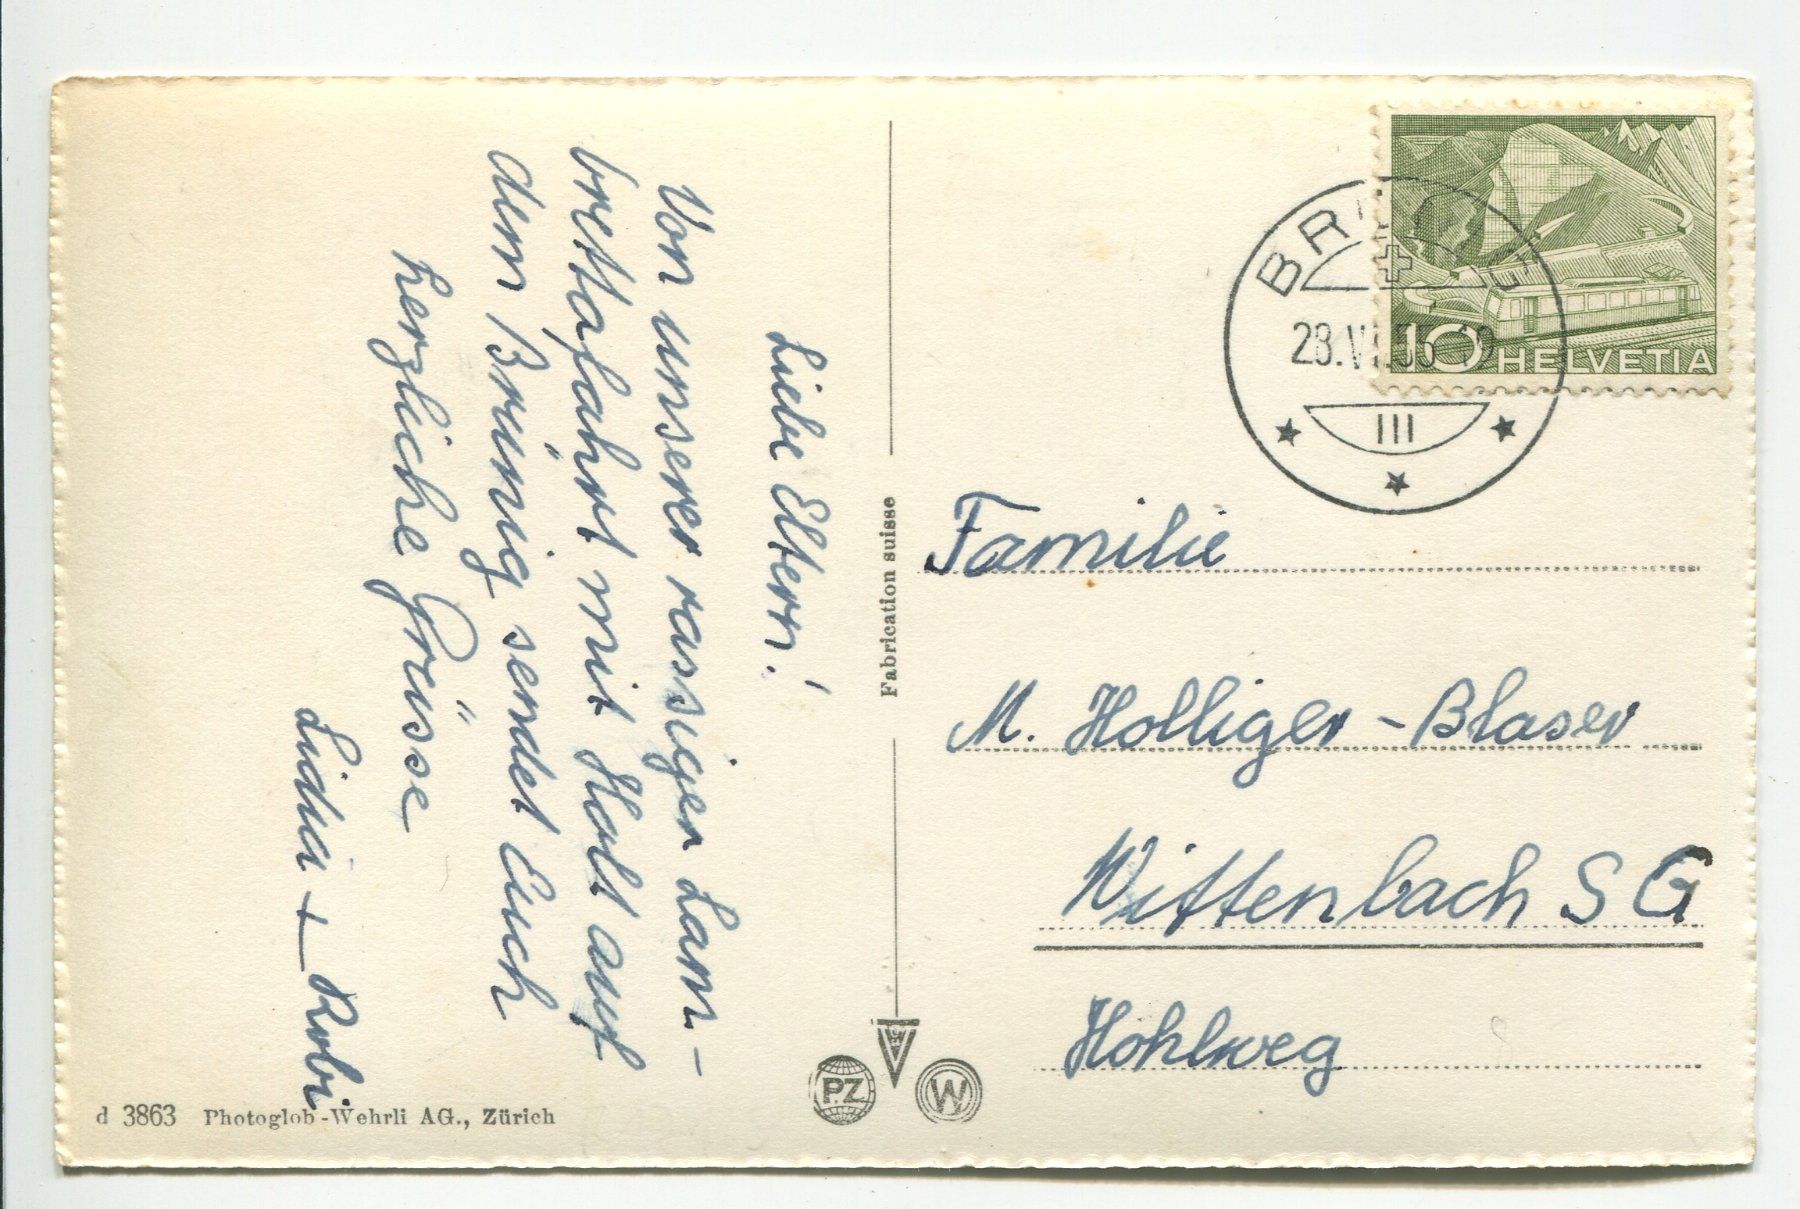 Liebe Eltern!
Von unserer rassigen Lam-
brettafahrt mit Halt auf
dem Brünig sendet Euch
herzliche Grüsse
Lidia + Robi
d 3863 Photoglob-Wehrli AG., Zürich
Fabrication suisse
PZ
W
10 HELVETIA
28.VI.55
III
Familie
M. Holliger-Blaser
Wittenbach SG
Hohlweg